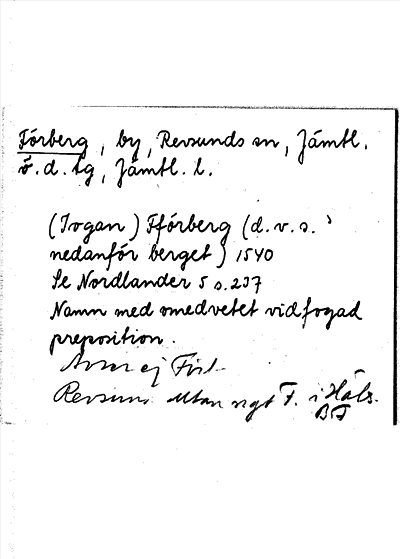 Förberg, by, Revsunds sn, Jämtl.
ö. d. tg, Jämtl. l.
(Jogan) Fförberg (d.v.s.
nedanför berget) 1540
Se Nordlander 5 s. 237
Namn med omedvetet vidfogad
preposition.
ej
Revsund utan ngt F. i Häls.